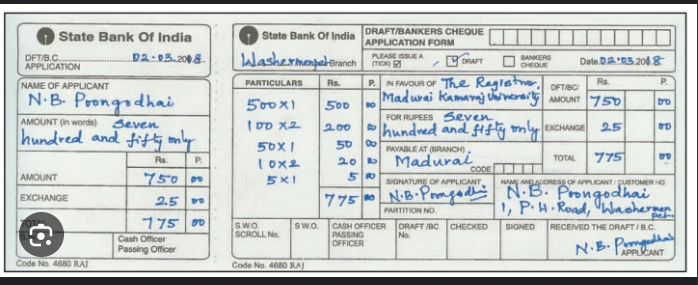 State Bank Of India
DFT/B.C. APPLICATION
02.03.2008
NAME OF APPLICANT
N.B. Poongodhai
AMOUNT (in words) Seven
hundred and fifty only
Rs. P.
AMOUNT 750 00
EXCHANGE 25 00
TOTAL 775 00
Cash Officer
Passing Officer
Code No. 4680 RAJ
State Bank Of India
DRAFT/BANKERS CHEQUE
APPLICATION FORM
Washermenpet Branch
PLEASE ISSUE A
(TICK) ☑
✓ DRAFT
BANKERS
CHEQUE
Date 02.03.2008
PARTICULARS Rs. P.
500X1 500 00
100X2 200 00
50X1 50 00
10X2 20 00
5X1 5 00
775 00
IN FAVOUR OF The Registrar,
Madurai Kamaraj University
FOR RUPEES Seven
hundred and fifty only
PAYABLE AT (BRANCH)
Madurai
CODE
DFT/BC/ Rs. P.
AMOUNT 750 00
EXCHANGE 25 00
TOTAL 775 00
SIGNATURE OF APPLICANT
N.B. Poongodhai
PARTITION NO.
NAME AND ADDRESS OF APPLICANT / CUSTOMER NO.
N.B. Poongodhai
1, P.H. Road, Washermen
pet.
S.W.O.
SCROLL No.
S.W.O.
CASH OFFICER
PASSING
OFFICER
DRAFT /BC
No.
CHECKED
SIGNED
RECEIVED THE DRAFT / B.C.
N.B. Poongodhai
APPLICANT
Code No. 4680 RAJ